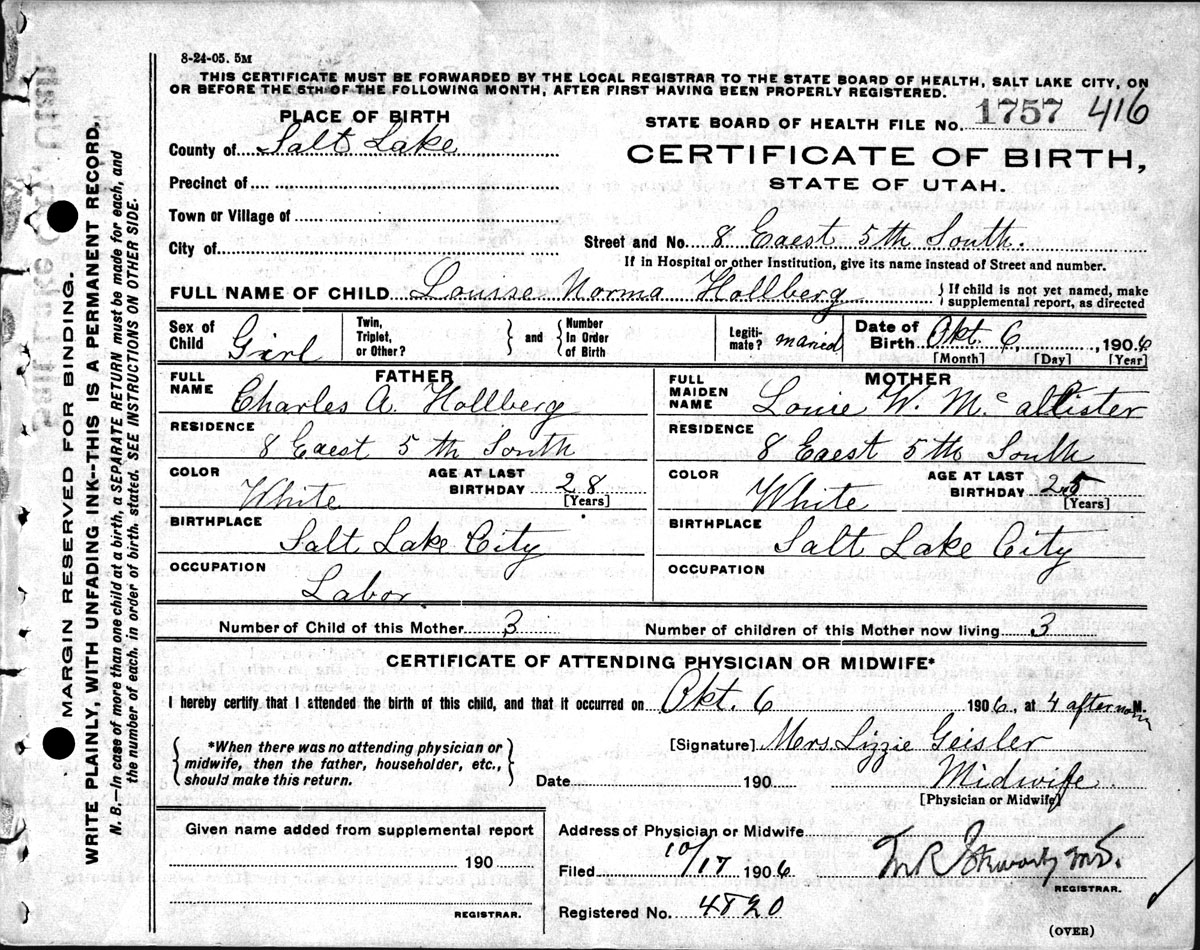 8-24-05. 5M
THIS CERTIFICATE MUST BE FORWARDED BY THE LOCAL REGISTRAR TO THE STATE BOARD OF HEALTH, SALT LAKE CITY, ON
OR BEFORE THE 5TH OF THE FOLLOWING MONTH, AFTER FIRST HAVING BEEN PROPERLY REGISTERED.
PLACE OF BIRTH
STATE BOARD OF HEALTH FILE No. 1757 416
County of Salt Lake
CERTIFICATE OF BIRTH,
STATE OF UTAH.
Precinct of
Town or Village of
City of
Street and No. 8 Eaest 5th South.
If in Hospital or other Institution, give its name instead of Street and number.
FULL NAME OF CHILD Louise Norma Hollberg
If child is not yet named, make
supplemental report, as directed
Sex of Child Girl
Twin, Triplet, or Other?
and Number In Order of Birth
Legiti- mate? married
Date of Birth Okt. 6, 1906
[Month] [Day] [Year]
FATHER
FULL NAME Charles A. Hollberg
RESIDENCE
8 Eaest 5th South
COLOR White
AGE AT LAST BIRTHDAY 28
[Years]
BIRTHPLACE
Salt Lake City
OCCUPATION
Labor.
MOTHER
FULL MAIDEN NAME Louie W. McAllister
RESIDENCE
8 Eaest 5th South
COLOR White
AGE AT LAST BIRTHDAY 25
[Years]
BIRTHPLACE
Salt Lake City
OCCUPATION
Number of Child of this Mother 3
Number of children of this Mother now living 3
CERTIFICATE OF ATTENDING PHYSICIAN OR MIDWIFE*
I hereby certify that I attended the birth of this child, and that it occurred on Okt. 6 1906, at 4 afternoon M.
*When there was no attending physician or
midwife, then the father, householder, etc.,
should make this return.
[Signature] Mrs. Lizzie Geisler
Date 190
Midwife.
[Physician or Midwife]
Given name added from supplemental report
190
REGISTRAR.
Address of Physician or Midwife
Filed 10/17 1906
M.D.
REGISTRAR.
Registered No. 4820
(OVER)
MARGIN RESERVED FOR BINDING.
WRITE PLAINLY, WITH UNFADING INK--THIS IS A PERMANENT RECORD,
N. B.—In case of more than one child at a birth, a SEPARATE RETURN must be made for each, and
the number of each, in order of birth, stated. SEE INSTRUCTIONS ON OTHER SIDE.